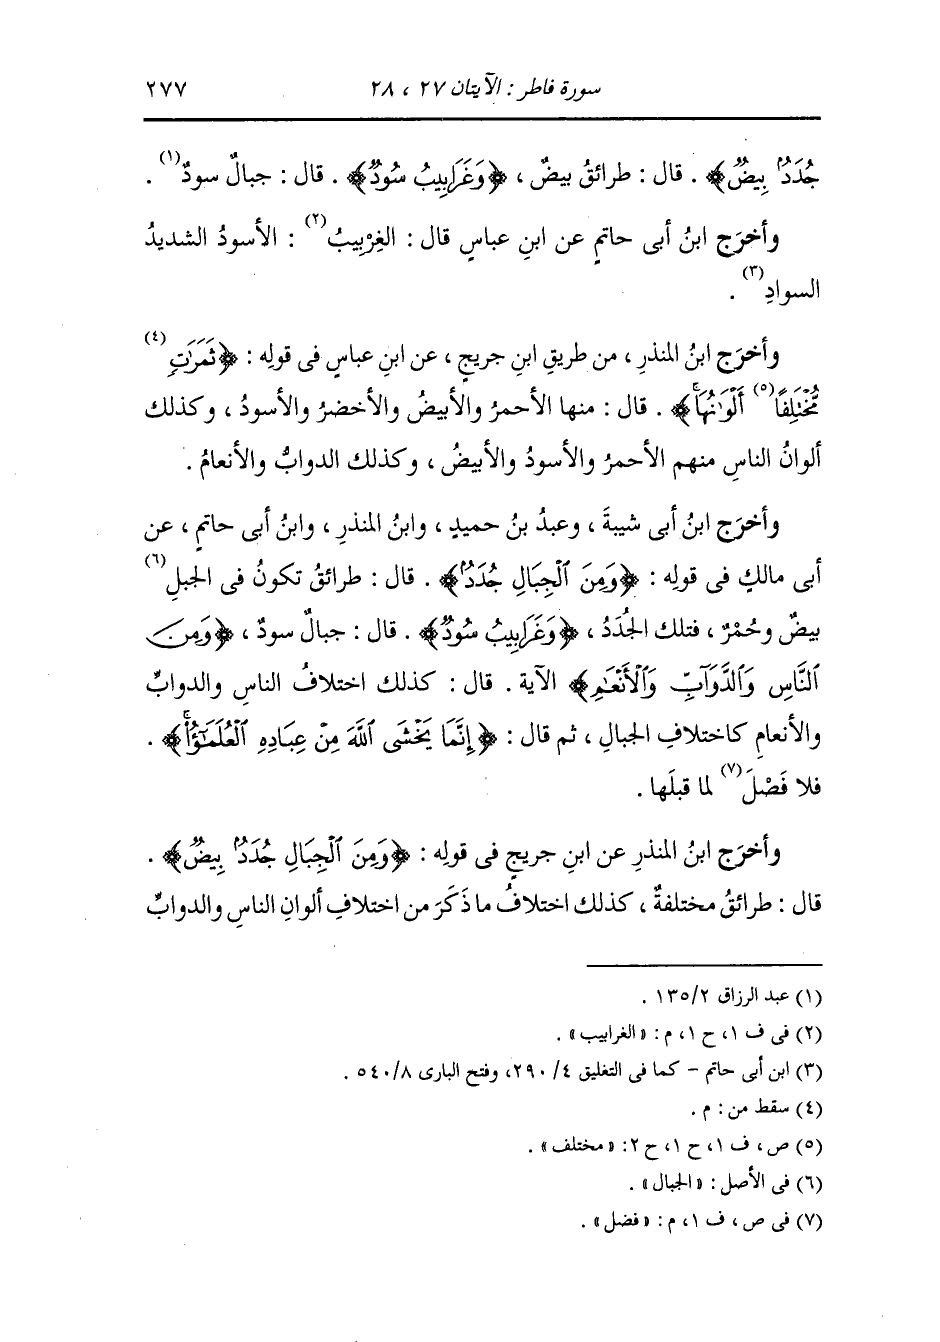 سورة فاطر : الآيتان ٢٧ ، ٢٨ ٢٧٧
جُدَدٌ بِيضٌ﴾ . قال : طرائقُ بيضٌ ، ﴿وَغَرَابِيبُ سُودٌ﴾ . قال : جبالٌ سودٌ(١) .
وأخرَج ابنُ أبى حاتمٍ عن ابنِ عباسٍ قال : الغِرْبِيبُ(٢) : الأسودُ الشديدُ
السوادِ(٣) .
وأخرَج ابنُ المنذرِ ، من طريقِ ابنِ جريجٍ ، عن ابنِ عباسٍ فى قولِه : ﴿ثَمَرَٰتٍ(٤)
مُّخْتَلِفًا(٥) أَلْوَٰنُهَا﴾ . قال : منها الأحمرُ والأبيضُ والأخضرُ والأسودُ ، وكذلك
ألوانُ الناسِ منهم الأحمرُ والأسودُ والأبيضُ ، وكذلك الدوابُّ والأنعامُ .
وأخرَج ابنُ أبى شيبةَ ، وعبدُ بنُ حميدٍ ، وابنُ المنذرِ ، وابنُ أبى حاتمٍ ، عن
أبى مالكٍ فى قولِه : ﴿وَمِنَ ٱلْجِبَالِ جُدَدٌ﴾ . قال : طرائقُ تكونُ فى الجبلِ(٦)
بيضٌ وحُمْرٌ ، فتلك الجُدَدُ ، ﴿وَغَرَابِيبُ سُودٌ﴾ . قال : جبالٌ سودٌ ، ﴿وَمِنَ
ٱلنَّاسِ وَٱلدَّوَآبِّ وَٱلْأَنْعَٰمِ﴾ الآية . قال : كذلك اختلافُ الناسِ والدوابِّ
والأنعامِ كاختلافِ الجبالِ ، ثم قال : ﴿إِنَّمَا يَخْشَى ٱللَّهَ مِنْ عِبَادِهِ ٱلْعُلَمَٰٓؤُاْ﴾ .
فلا فَصْلَ(٧) لما قبلَها .
وأخرَج ابنُ المنذرِ عن ابنِ جريجٍ فى قولِه : ﴿وَمِنَ ٱلْجِبَالِ جُدَدٌ بِيضٌ﴾ .
قال : طرائقُ مختلفةٌ ، كذلك اختلافُ ما ذَكَرَ من اختلافِ ألوانِ الناسِ والدوابِّ
(١) عبد الرزاق ١٣٥/٢ .
(٢) فى ف ١، ح ١، م : «الغرابيب» .
(٣) ابن أبى حاتم - كما فى التغليق ٤/ ٢٩٠، وفتح البارى ٥٤٠/٨ .
(٤) سقط من : م .
(٥) ص، ف ١، ح ١، ح ٢: «مختلف» .
(٦) فى الأصل : «الجبال» .
(٧) فى ص، ف ١، م : «فضل» .